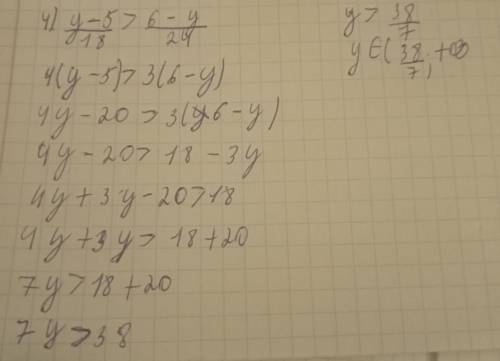 4) y-5/18 > 6-y/24
4(y-5)>3(6-y)
4y-20>3(6-y)
4y-20>18-3y
4y+3y-20>18
4y+3y>18+20
7y>18+20
7y>38
y>38/7
y∈(38/7;+∞